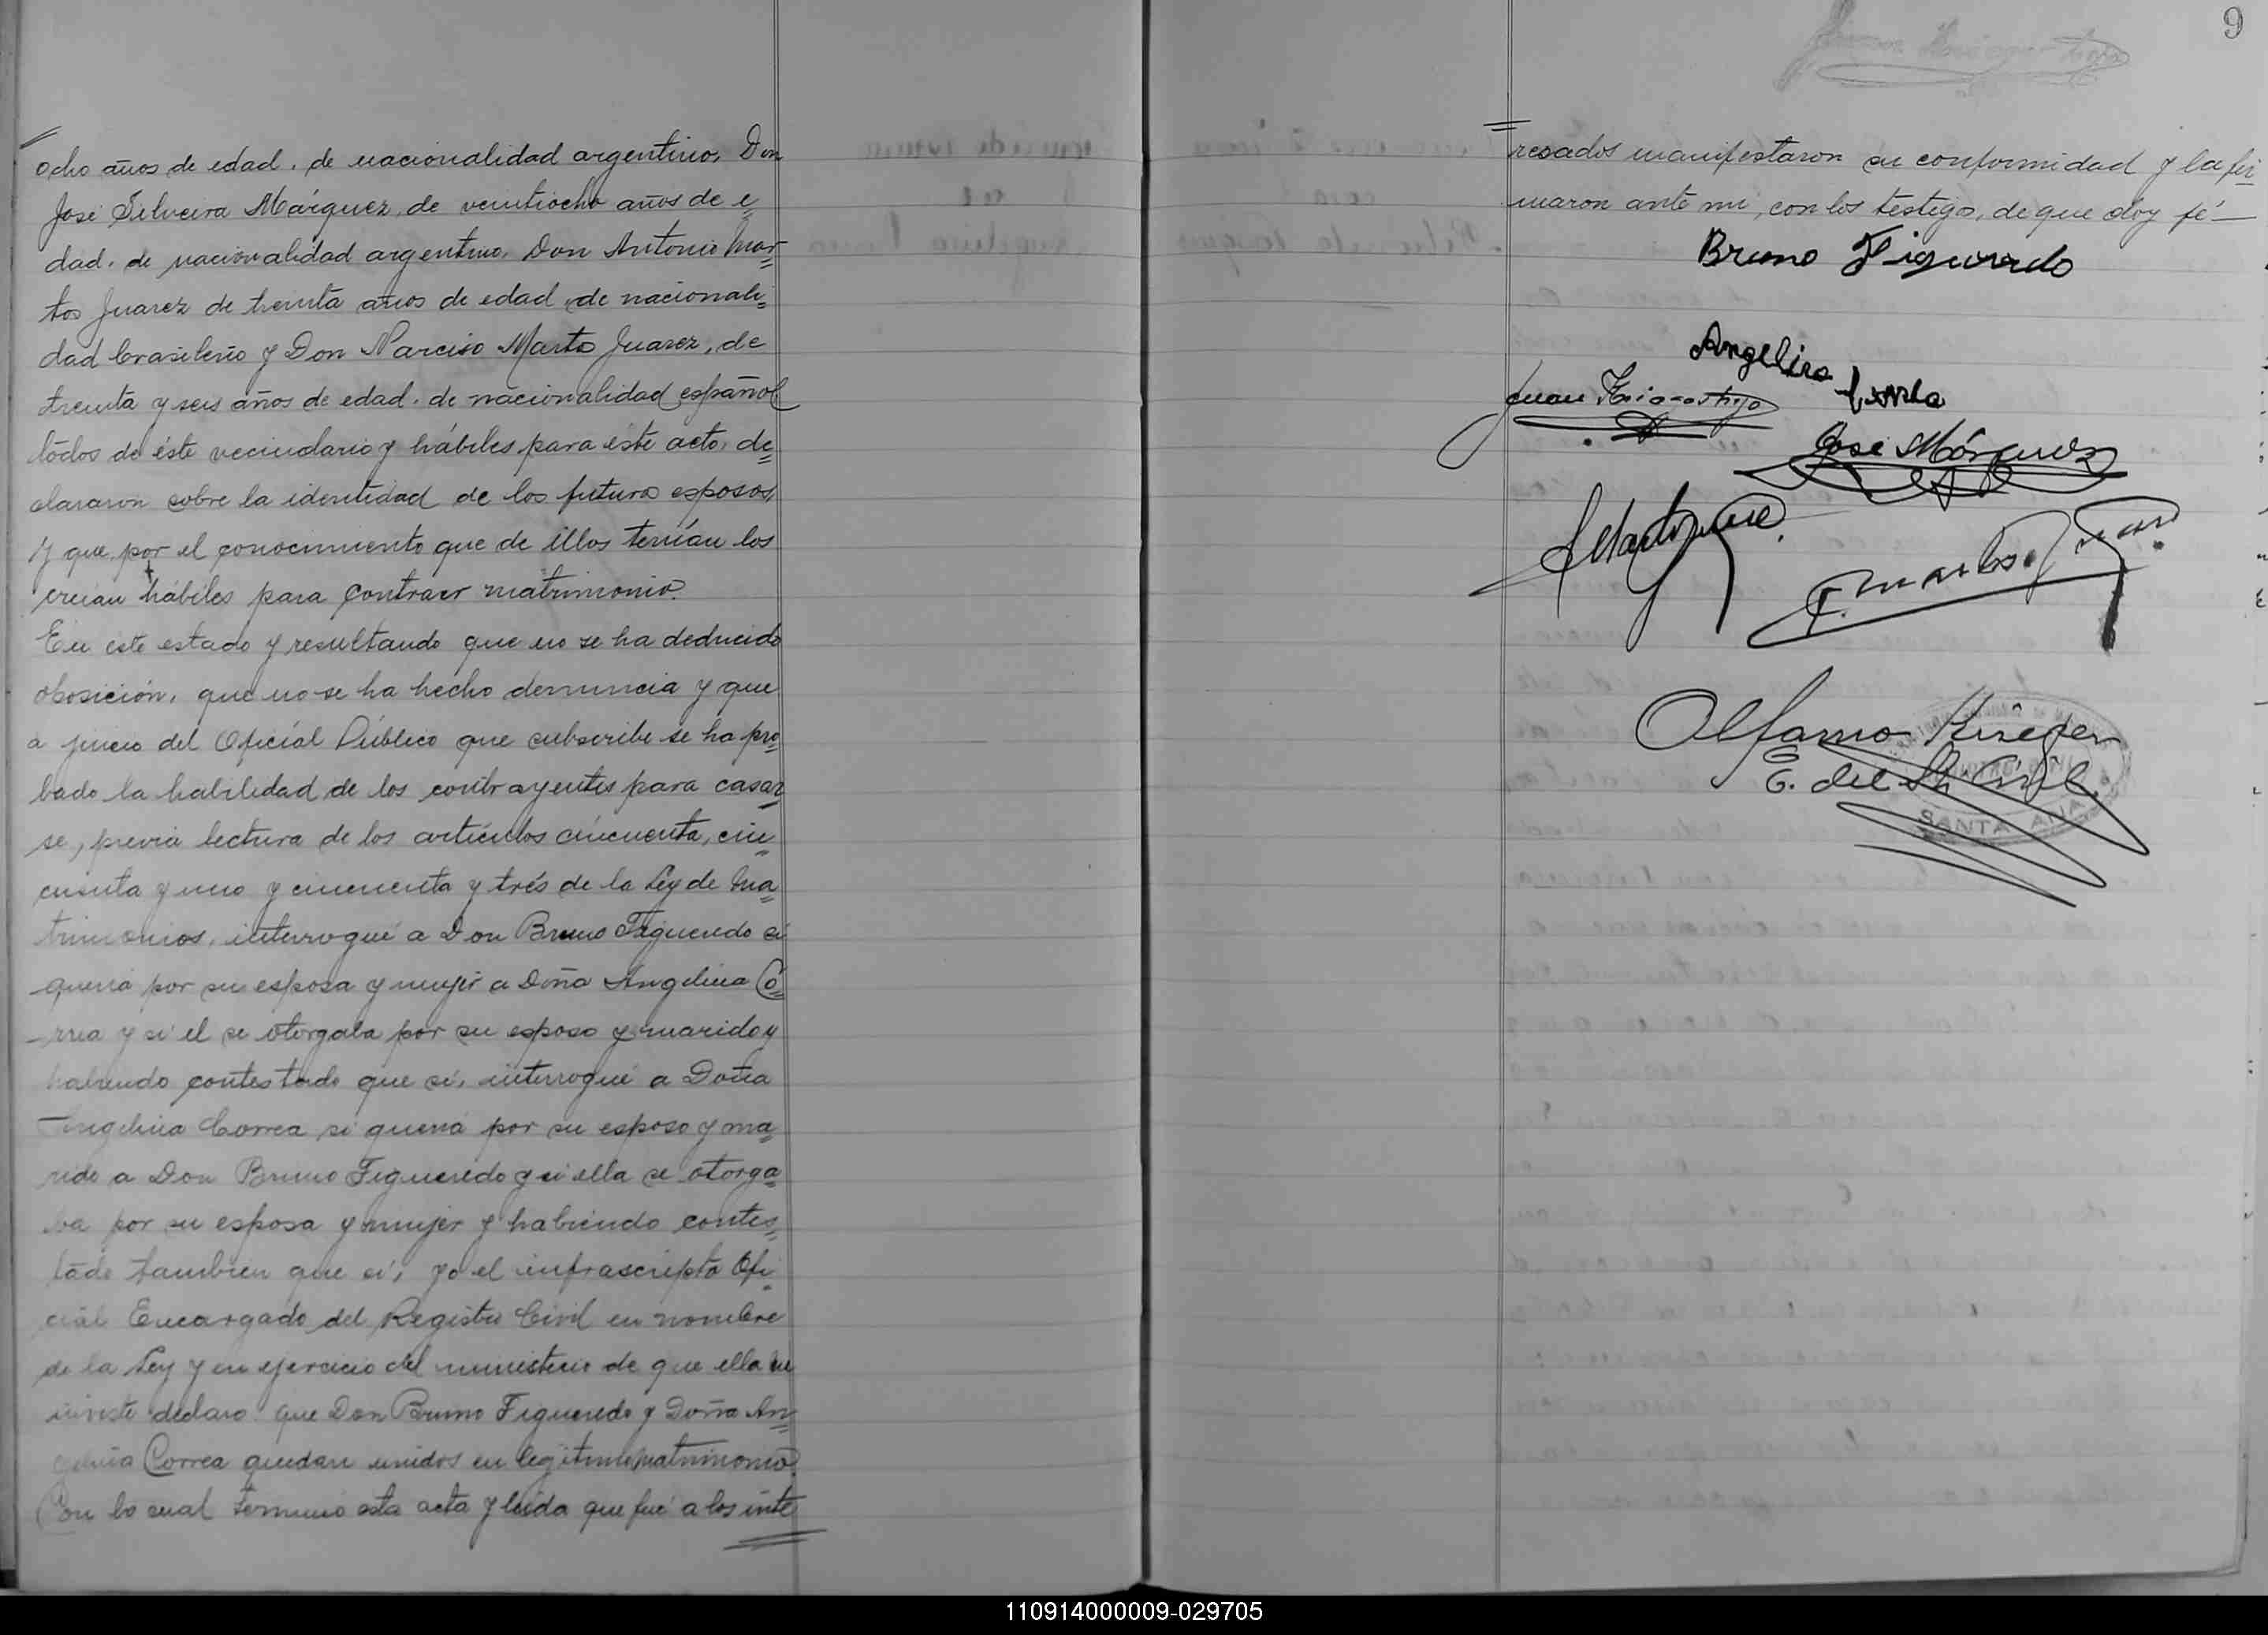 ocho años de edad, de nacionalidad argentino, Don
José Silveira Márquez, de veintiocho años de e
dad, de nacionalidad argentino, Don Antonio Mar
tos Juarez de treinta años de edad, de nacionali
dad brasileño y Don Narciso Martos Juarez, de
treinta y seis años de edad, de nacionalidad español
todos de éste vecindario y hábiles para éste acto, de
clararon sobre la identidad de los futuros esposos,
y que por el conocimiento que de illos tenían los
creían hábiles para contraer matrimonio.
En este estado y resultando que no se ha deducido
oposición, que no se ha hecho denuncia y que
a juicio del Oficial Público que subscribe se ha pro
bado la habilidad de los contrayentes para casar
se, previa lectura de los artículos cincuenta, cin
cuenta y uno y cincuenta y trés de la Ley de Ma
trimonios, interrogué a Don Bruno Figueredo si
quería por su esposa y mujer a Doña Angelina Co
rrea y si él se otorgaba por su esposo y marido y
habiendo contestado que sí, interrogué a Doña
Angelina Correa si quería por su esposo y ma
rido a Don Bruno Figueredo y si ella se otorga
ba por su esposa y mujer y habiendo contes
tado tambien que sí, yo el infrascripto Ofi
cial Encargado del Registro Civil en nombre
de la Ley y en ejercicio del ministerio de que ella me
inviste declaro que Don Bruno Figueredo y Doña An
gelina Correa quedan unidos en legítimo matrimonio.
Con lo cual terminó esta acta y leída que fué a los inte
9
resados manifestaron su conformidad y la fir
maron ante mi, con los testigos, de que doy fé
Bruno Figueredo
Angelina
Juan
José Márquez
E. del R. Civil
SANTA ANA
110914000009-029705